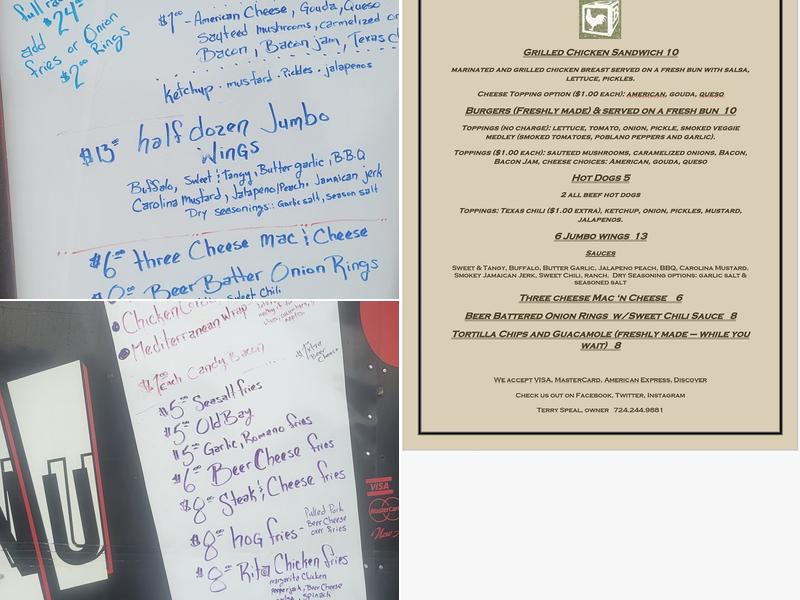 full ra
$24
add
fries or Onion
$2 Rings
$1 - American Cheese, Gouda, Queso
Sauteed mushrooms, carmelized or
Bacon, Bacon jam, Texas C
Ketchup · mustard · Pickles · jalapenos
$13 half dozen Jumbo
Wings
Buffalo, Sweet & Tangy, Butter garlic, B.B.Q
Carolina Mustard, Jalapeno/Peach, Jamaican jerk
Dry seasonings: Garlic salt, season salt
$6 three Cheese mac & Cheese
Beer Batter Onion Rings
Sweet Chili
Chicken
Mediterranean Wrap
$1 each Candy Bacon
$1 extra
Beer Cheese
$5 Seasalt fries
$5 Old Bay
$5 Garlic, Romano fries
$6 Beer Cheese fries
$8 Steak & Cheese fries
$8 hog fries - Pulled Pork
Beer Cheese
over fries
$8 Rita Chicken fries
margarita Chicken
Pepperjack, Beer Cheese
spinach
NU
VISA
MasterCard
Grilled Chicken Sandwich 10
marinated and grilled chicken breast served on a fresh bun with salsa,
lettuce, pickles.
Cheese Topping option ($1.00 each): american, gouda, queso
Burgers (Freshly made) & served on a fresh bun 10
Toppings (no charge): lettuce, tomato, onion, pickle, smoked veggie
medley (smoked tomatoes, poblano peppers and garlic).
Toppings ($1.00 each): sauteed mushrooms, caramelized onions, Bacon,
Bacon jam, cheese choices: American, gouda, queso
Hot Dogs 5
2 all beef hot dogs
Toppings: Texas chili ($1.00 extra), ketchup, onion, pickles, mustard,
jalapenos.
6 Jumbo wings 13
Sauces
Sweet & Tangy, Buffalo, Butter Garlic, Jalapeno peach, BBQ, Carolina Mustard,
Smokey Jamaican Jerk, Sweet Chili, ranch. Dry Seasoning options: garlic salt &
seasoned salt
Three cheese Mac 'n Cheese 6
Beer Battered Onion Rings w/Sweet Chili Sauce 8
Tortilla Chips and Guacamole (freshly made – while you
wait) 8
We accept VISA, MasterCard, American Express, Discover
Check us out on Facebook, Twitter, Instagram
Terry Speal, owner 724.244.9881